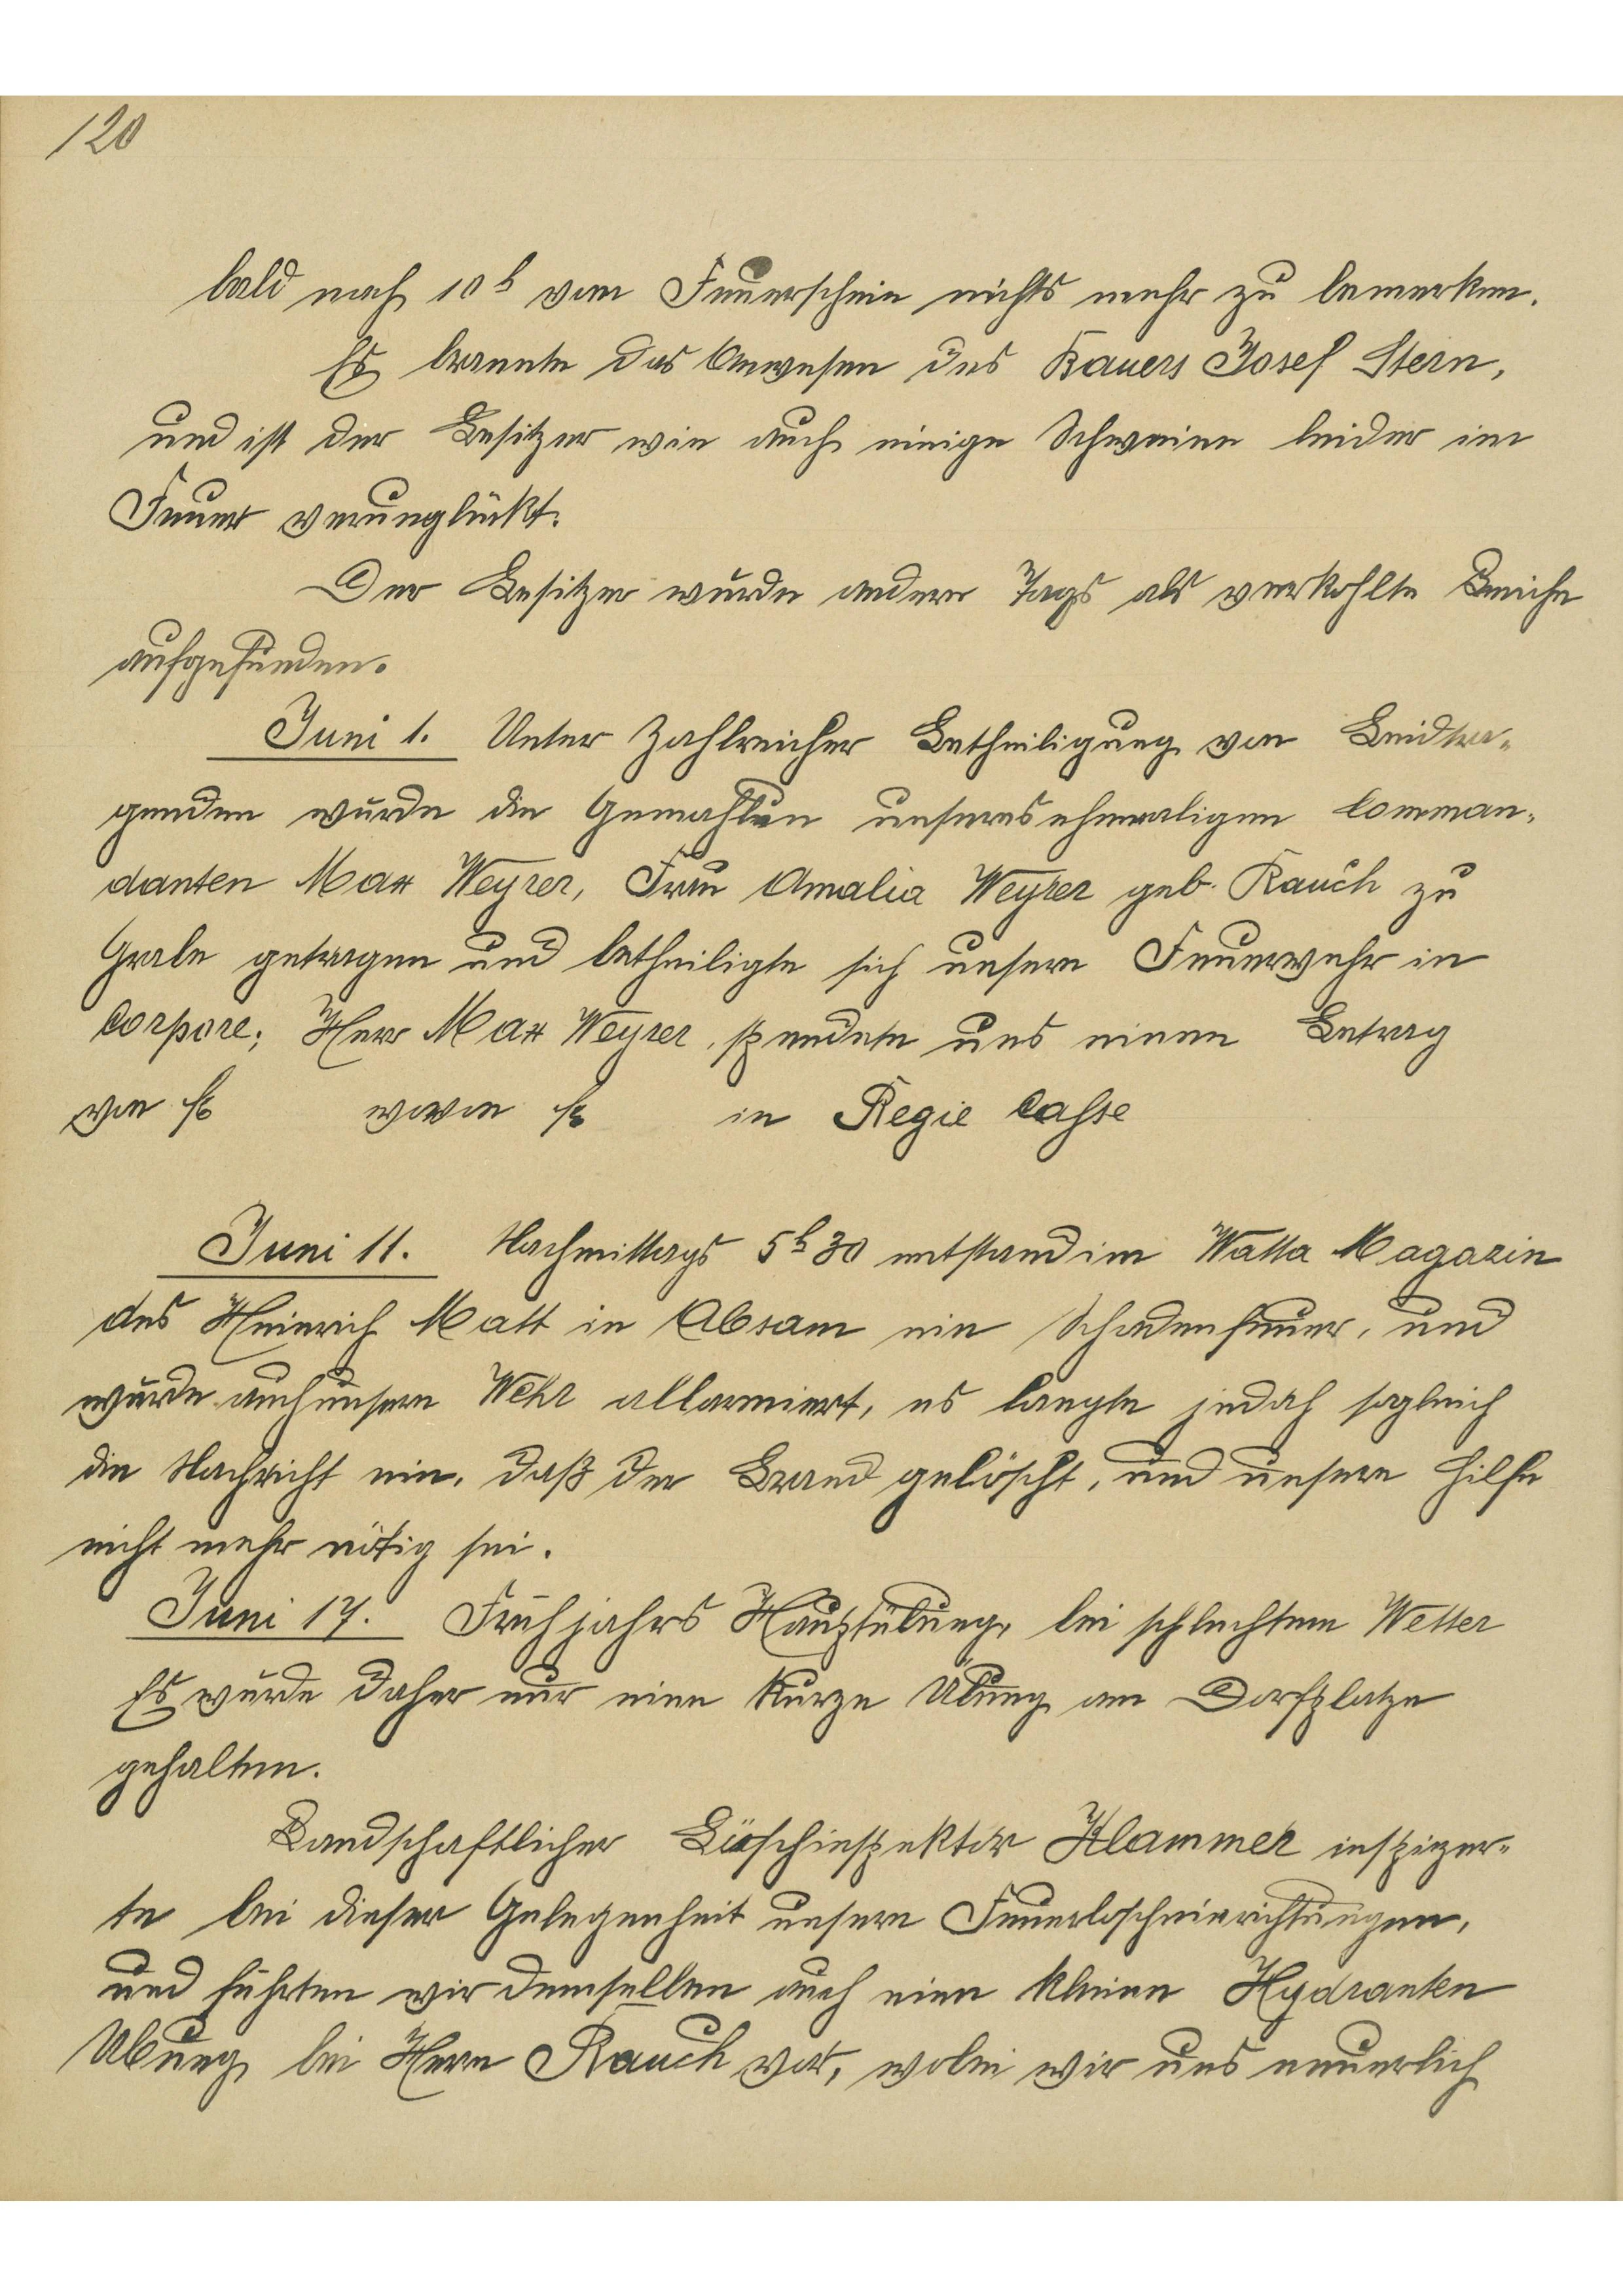 120
bald nach 10 h vom Feuerschein nichts mehr zu bemerken.
Es brannte das Anwesen des Bauers Josef Stern,
und ist der Besitzer wie auch einige Schweine leider im
Feuer verunglückt.
Der Besitzer wurde andern Tags als verkohlte Leiche
aufgefunden.
Juni 1. Unter Zahlreicher Betheiligung von Leidtra-
genden wurde die Gemahlin unseres ehemaligen Comman-
danten Max Weyrer, Frau Amalia Weyrer geb. Rauch zu
Grabe getragen und betheiligte sich unsere Feuerwehr in
Corpore; Herr Max Weyrer, spendete uns einen Betrag
von fl wovon fl in Regie Casse
Juni 11. Nachmittags 5 h 30 entstand im Watta Magazin
des Heinrich Matt in Absam ein Schadenfeuer, und
wurde auch unsere Wehr allarmiert, es langte jedoch sogleich
die Nachricht ein, daß der Brand gelöscht, und unsere Hilfe
nicht mehr nötig sei.
Juni 17. Frühjahrs Hauptübung, bei schlechtem Wetter
Es wurde daher nur eine Kurze Übung am Dorfplatze
gehalten.
Landschaftlicher Löschinspektor Klammer inspizier-
te bei dieser Gelegenheit unsere Feuerloscheinrichtungen,
und führten wir demselben auch eine kleine Hydranten
Ubung bei Herrn Rauch vor, wobei wir uns neuerlich